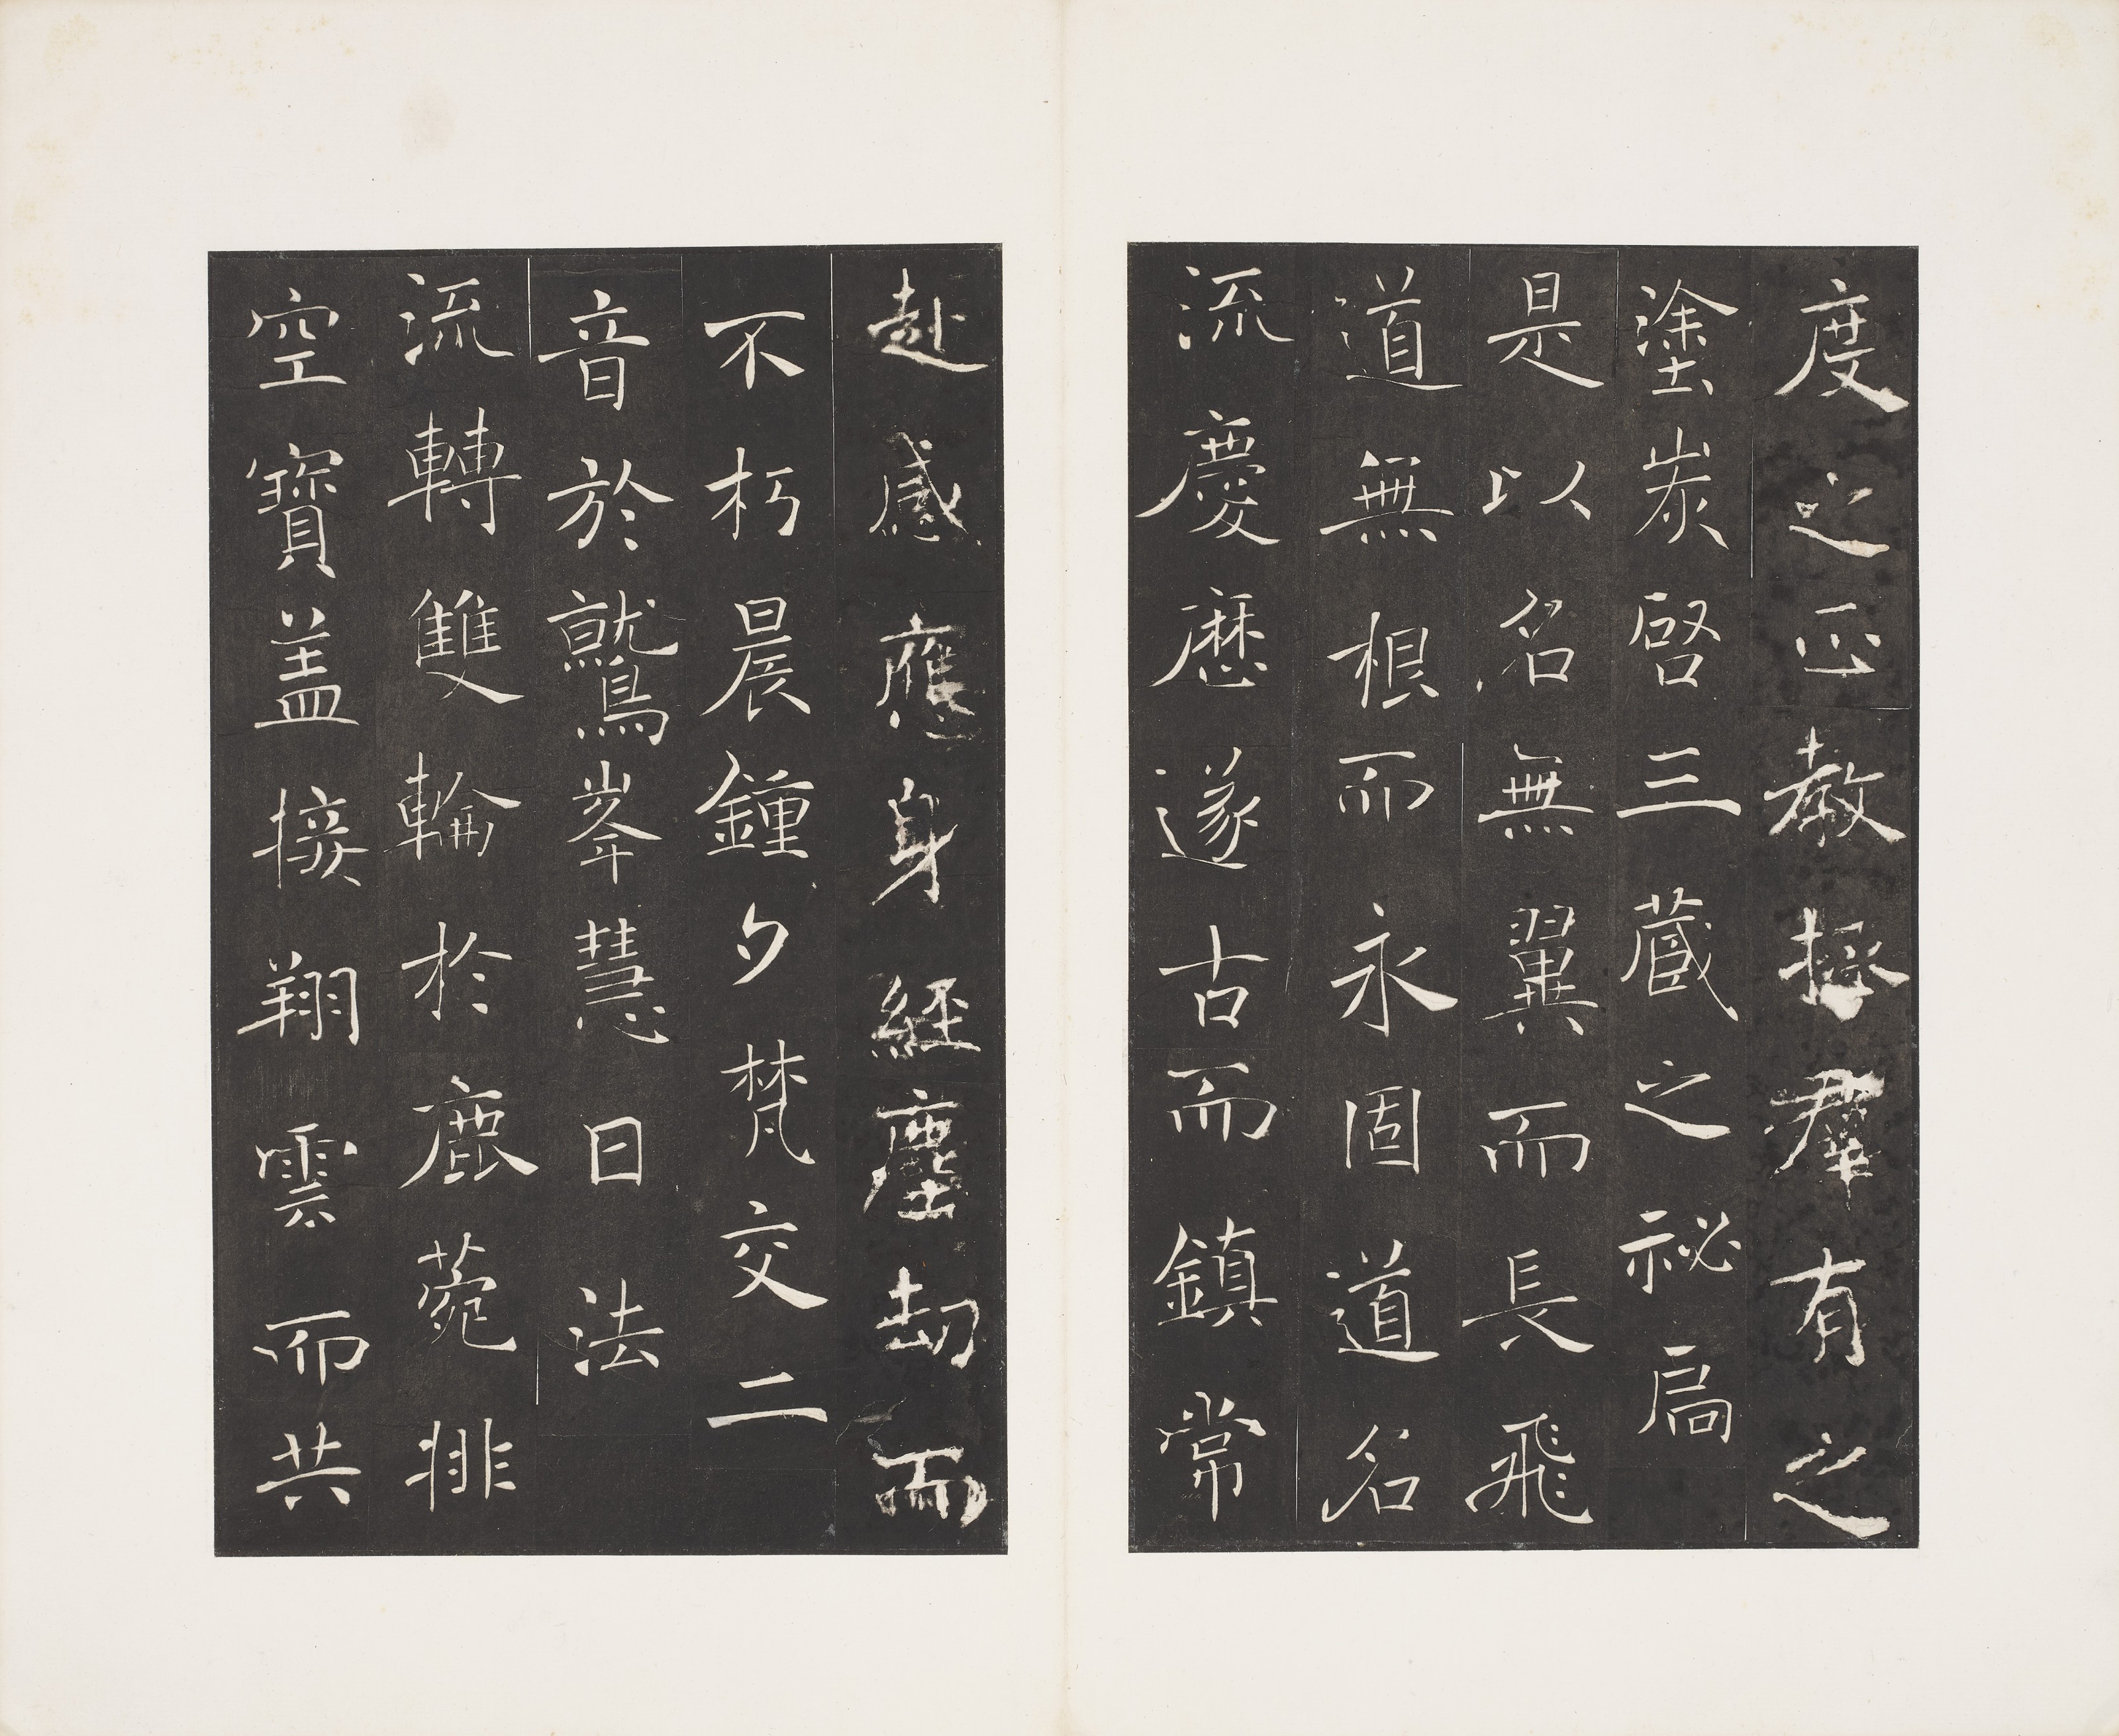 度之正教拯羣有之
塗炭啓三藏之祕扃
是以名無翼而長飛
道無根而永固道名
流慶歷遂古而鎮常
赴感應身經塵劫而
不朽晨鍾夕梵交二
音於鷲峯慧日法
流轉雙輪於鹿菀排
空寶蓋接翔雲而共